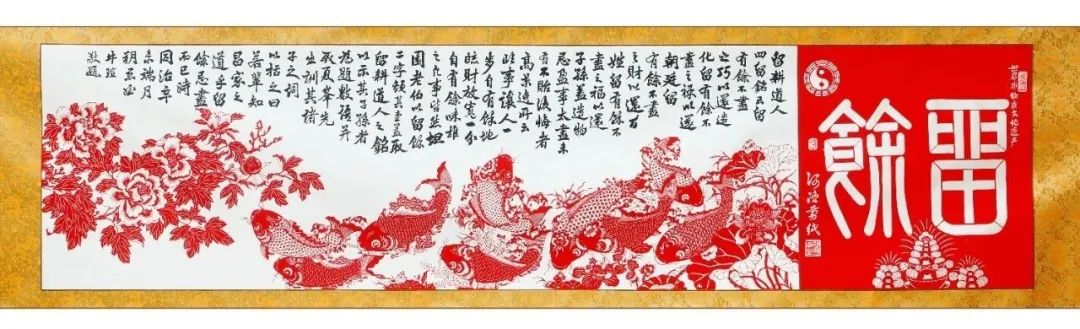 留餘
留耕道人
四留銘云留
有餘不盡
之巧以還造
化留有餘不
盡之祿以還
朝廷留
有餘不盡
之財以還百
姓留有餘不
盡之福以還
子孫蓋造物
忌盈事太盡未
有不貽後悔者
高景逸所云
臨事讓人一
步自有餘地
臨財放寬一分
自有餘味推
之凡事皆然坦
園老伯以留餘
二字顏其堂蓋取
留耕道人之銘
以示其子孫者
為題數語并
取夏峯先
生訓其諸
子之詞
以括之曰
若輩知
昌家之
道乎留
餘忌盡
而已時
同治辛
未端月
朔愚姪
牛瑄
敬題